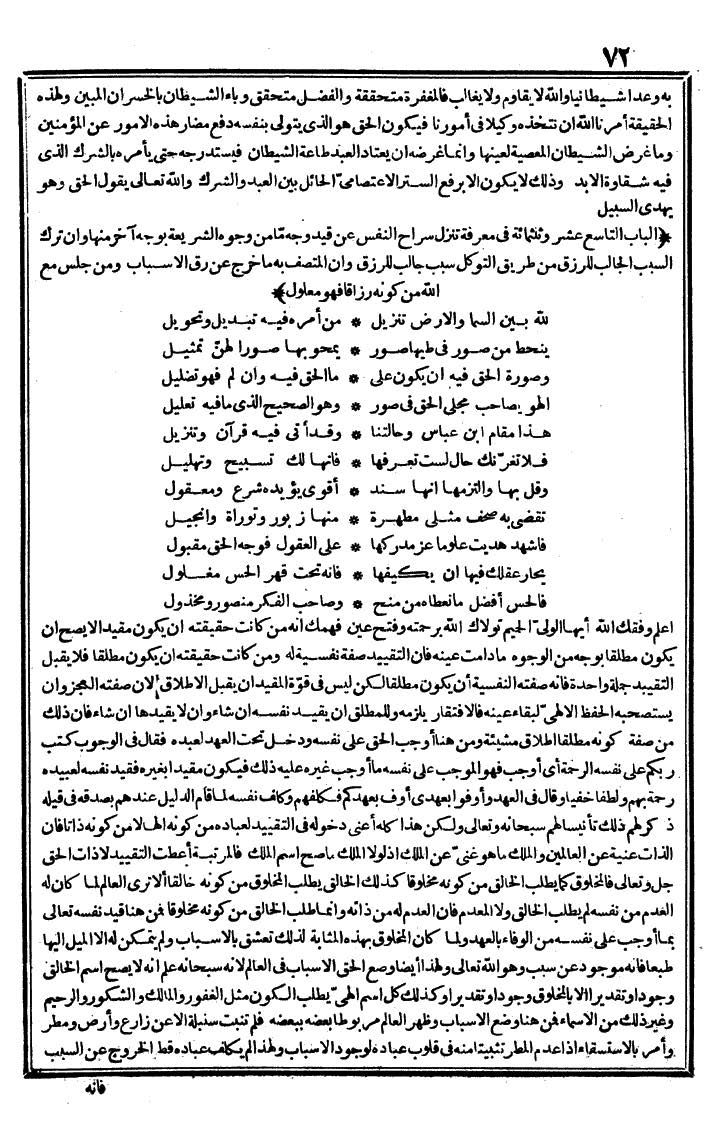 ٧٢
به وعدا شيطانيا والله لا يقاوم ولا يغالب فالمغفرة متحققة والفضل متحقق وباء الشيطان بالخسران المبين ولهذه
الحقيقة أمرنا الله ان نتخذه وكيلا فى أمورنا فيكون الحق هو الذى يتولى بنفسه دفع مضار هذه الامور عن المؤمنين
وما غرض الشيطان المعصية لعينها وانما غرضه ان يعتاد العبد طاعة الشيطان فيستدرجه حتى يأمره بالشرك الذى
فيه شقاوة الابد وذلك لا يكون الا برفع الستر الاعتصامىّ الحائل بين العبد والشرك والله تعالى يقول الحق وهو
يهدى السبيل
﴿الباب التاسع عشر وثلثمائة فى معرفة تنزل سراح النفس عن قيد وجه مّا من وجوه الشريعة بوجه آخر منها وان ترك
السبب الجالب للرزق من طريق التوكل سبب جالب للرزق وان المتصف به ما خرج عن رق الاسباب ومن جلس مع
الله من كونه رزاقا فهو معلول﴾
لله بين السما والارض تنزيل * من أمره فيه تبديل وتحويل
ينحط من صور فى طيها صور * يمحو بها صورا لهنّ تمثيل
وصورة الحق فيه ان يكون على * ما الحق فيه وان لم فهو تضليل
الهو يصاحب مجلى الحق فى صور * وهو الصحيح الذى ما فيه تعليل
هذا مقام ابن عباس وحالتنا * وقد أتى فيه قرآن وتنزيل
فلا تغرّنك حال لست تعرفها * فانها لك تسبيح وتهليل
وقل بها والتزمها انها سند * أقوى يؤيده شرع ومعقول
تقضى به صحف مثلى مطهرة * منها زبور وتوراة وانجيل
فاشهد هديت علوما عز مدركها * على العقول فوجه الحق مقبول
يحار عقلك فيها ان يكيفها * فانه تحت قهر الحس مغلول
فالحس أفضل ما تعطاه من منح * وصاحب الفكر منصور ومخذول
اعلم وفقك الله أيها الولىّ الحميم تولاك الله برحمته وفتح عين فهمك انه من كانت حقيقته ان يكون مقيدا لا يصح ان
يكون مطلقا بوجه من الوجوه ما دامت عينه فان التقييد صفة نفسية له ومن كانت حقيقته ان يكون مطلقا فلا يقبل
التقييد جلة واحدة فانه صفته النفسية أن يكون مطلقا لكن ليس فى قوّة المقيد ان يقبل الاطلاق لان صفته العجز وان
يستصحبه الحفظ الالهىّ لبقاء عينه فالافتقار يلزمه وللمطلق ان يقيد نفسه ان شاء وان لا يقيدها ان شاء فان ذلك
من صفة كونه مطلقا اطلاق مشيئة ومن هنا أوجب الحق على نفسه ودخل تحت العهد لعبده فقال فى الوجوب كتب
ربكم على نفسه الرحمة أى أوجب فهو الموجب على نفسه ما أوجب غيره عليه ذلك فيكون مقيدا بغيره فقيد نفسه لعبيده
رحمة بهم ولطفا خفيا وقال فى العهد وأوفوا بعهدى أوف بعهدكم فكلفهم وكلف نفسه لما قام الدليل عندهم بصدقه فى قيله
ذكر لهم ذلك تأنيسا لهم سبحانه وتعالى ولكن هذا كله أعنى دخوله فى التقييد لعباده من كونه الها لا من كونه ذاتا فان
الذات غنية عن العالمين والملك ما هو غنىّ عن الملك اذ لولا الملك ما صح اسم الملك فالمرتبة أعطت التقييد لا ذات الحق
جل وتعالى فالمخلوق كما يطلب الخالق من كونه مخلوقا كذلك الخالق يطلب المخلوق من كونه خالقا ألا ترى العالم لما كان له
العدم من نفسه لم يطلب الخالق ولا المعدم فان العدم له من ذاته وانما طلب الخالق من كونه مخلوقا فمن هنا قيد نفسه تعالى
بما أوجب على نفسه من الوفاء بالعهد ولما كان المخلوق بهذه المثابة لذلك تعشق بالاسباب ولم يتمكن له الا الميل اليها
طبعا فانه موجود عن سبب وهو الله تعالى ولهذا أيضا وضع الحق الاسباب فى العالم لانه سبحانه علم انه لا يصح اسم الخالق
وجودا وتقديرا الا بالمخلوق وجودا وتقديرا وكذلك كل اسم الهىّ يطلب الكون مثل الغفور والمالك والشكور والرحيم
وغير ذلك من الاسماء فمن هنا وضع الاسباب وظهر العالم مربوطا بعضه ببعضه فلم تنبت سنبلة الا عن زارع وأرض ومطر
وأمر بالاستسقاء اذا عدم المطر تثبيتا منه فى قلوب عباده لوجود الاسباب ولهذا لم يكلف عباده قط الخروج عن السبب
فانه